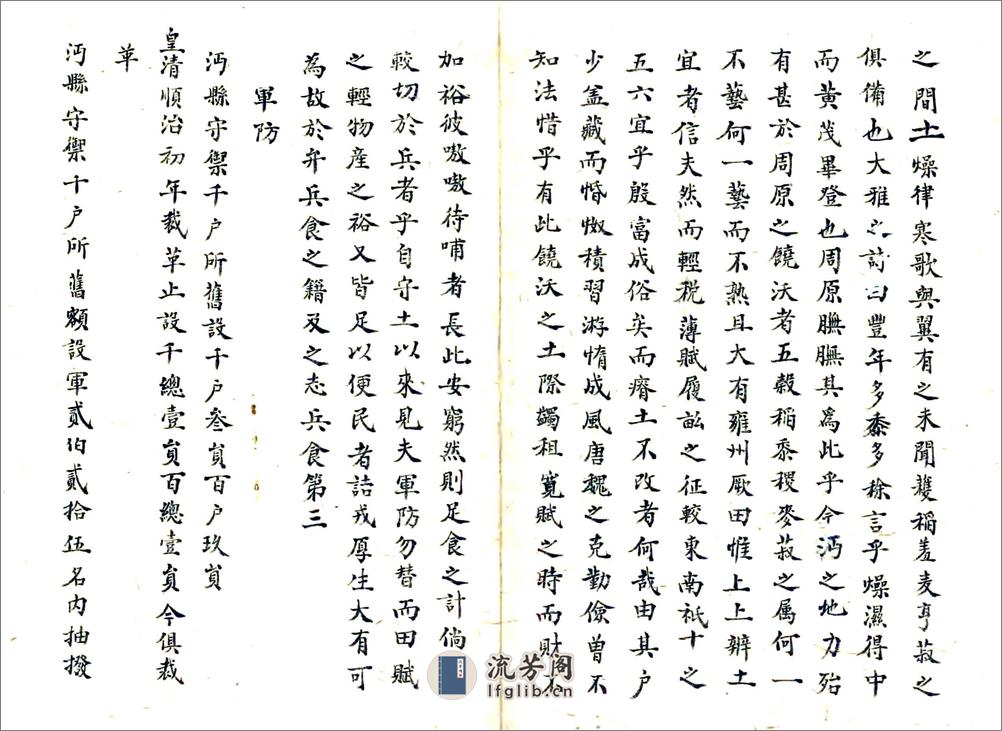 之間土燥律寒歌與翼有之未聞穫稻羞麦亨菽之
俱備也大雅之詩曰豐年多黍多稌言乎燥濕得中
而黄茂畢登也周原膴膴其為此乎今沔之地力殆
有甚於周原之饒沃者五穀稻黍稷麥菽之属何一
不藝何一藝而不熟且大有雍州厥田惟上上辨土
宜者信夫然而輕税薄賦履畝之征較東南祇十之
五六宜乎殷富成俗矣而瘠土不改者何哉由其户
少盖藏而惛怓積習游惰成風唐魏之克勤儉曽不
知法惜乎有此饒沃之土際蠲租寛賦之時而財不
加裕彼嗷嗷待哺者長此安窮然則足食之計倘
較切於兵者乎自守土以來見夫軍防勿替而田賦
之輕物產之裕又皆足以便民者詰戎厚生大有可
為故於弁兵食之籍及之志兵食第三
軍防
沔縣守禦千户所舊設千户叁貟百户玖貟
皇清順治初年裁革止設千總壹貟百總壹貟今俱裁
革
沔縣守禦千户所舊額設軍貳伯貳拾伍名内抽撥
流芳阁
lfglib.cn